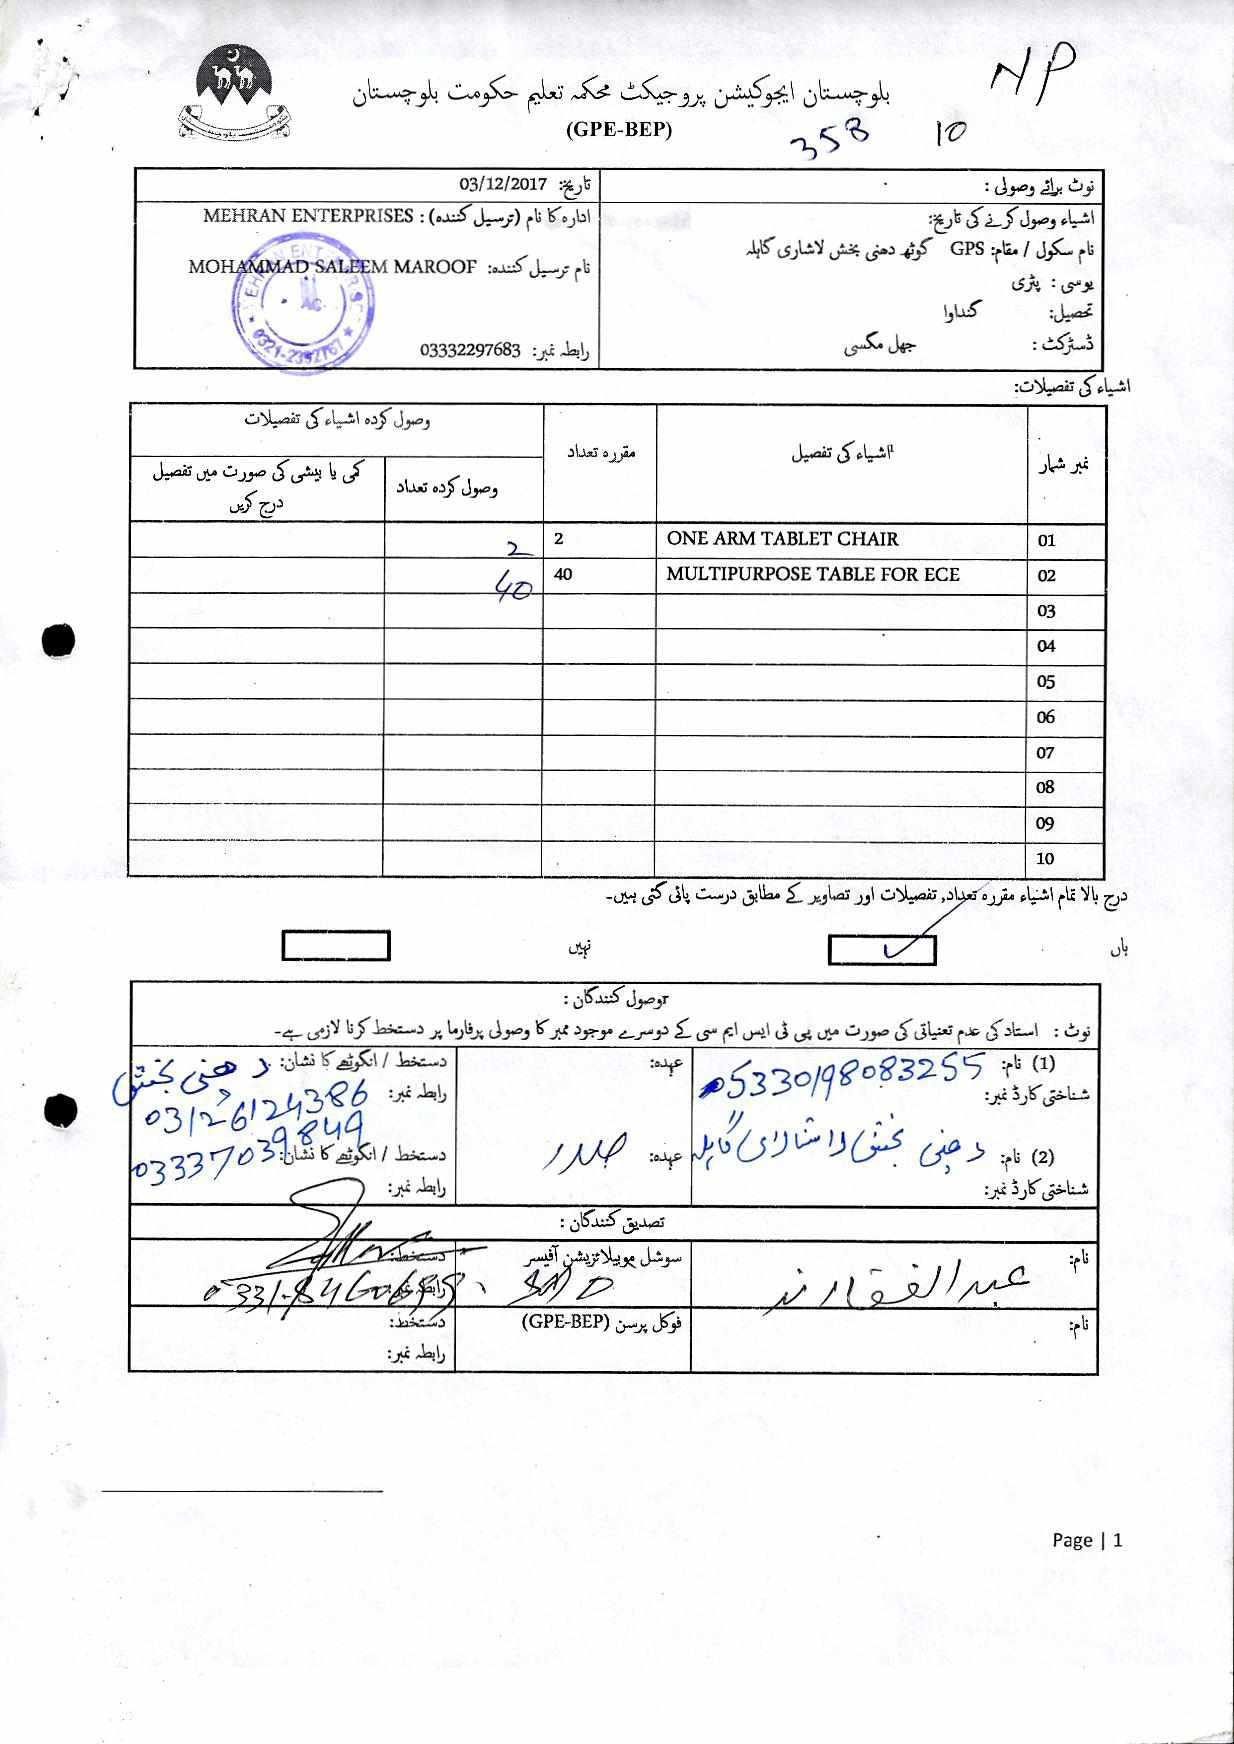 NP
بلوچستان ایجوکیشن پروجیکٹ محکمہ تعلیم حکومت بلوچستان
(GPE-BEP)
358 10
نوٹ برائے وصولی :
تاریخ: 03/12/2017
اشیاء وصول کرنے کی تاریخ:
ادارہ کا نام (ترسیل کنندہ) : MEHRAN ENTERPRISES
نام سکول / مقام: GPS گوٹھ دھنی بخش لاشاری گاہلہ
نام ترسیل کنندہ: MOHAMMAD SALEEM MAROOF
یوسی : پتڑی
تحصیل: گنداوا
ڈسٹرکٹ : جھل مگسی
رابطہ نمبر: 03332297683
0321-2392767
اشیاء کی تفصیلات:
نمبر شمار
اشیاء کی تفصیل
مقررہ تعداد
وصول کردہ اشیاء کی تفصیلات
وصول کردہ تعداد
کمی یا بیشی کی صورت میں تفصیل درج کریں
01 ONE ARM TABLET CHAIR 2 2
02 MULTIPURPOSE TABLE FOR ECE 40 40
03
04
05
06
07
08
09
10
درج بالا تمام اشیاء مقررہ تعداد, تفصیلات اور تصاویر کے مطابق درست پائی گئی ہیں۔
ہاں
نہیں
وصول کنندگان :
نوٹ : استاد کی عدم تعیناتی کی صورت میں پی ٹی ایس ایم سی کے دوسرے موجود ممبر کا وصولی پرفارما پر دستخط کرنا لازمی ہے۔
(1) نام:
عہدہ:
دستخط / انگوٹھے کا نشان: دھنی بخش
شناختی کارڈ نمبر: 5330198083255
رابطہ نمبر: 03126124386
03337039849
(2) نام: دھنی بخش لاشاری گاہلہ
عہدہ: صدر
دستخط / انگوٹھے کا نشان:
شناختی کارڈ نمبر:
رابطہ نمبر:
تصدیق کنندگان :
نام: عبدالغفار
سوشل موبیلائزیشن آفیسر
دستخط:
رابطہ نمبر:
نام:
فوکل پرسن (GPE-BEP)
دستخط:
رابطہ نمبر:
Page | 1